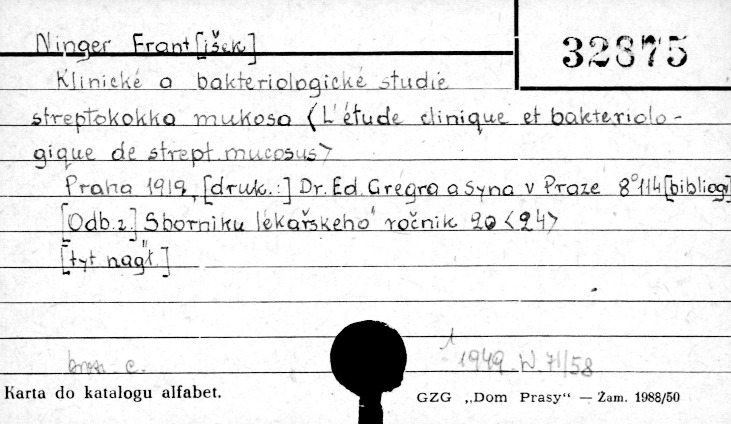 Ninger Frant[išek]
32875
Klinické a bakteriologické studie
streptokokka mukosa <L'étude clinique et bakteriolo-
gique de strept. mucosus>
Praha 1919, [druk.:] Dr. Ed. Grégra a syna v Praze 8° 114 [bibliogr
[Odb. z.] Sborniku lékařskeho ročnik 20 <24>
[tyt. nagł.]
1949 W 71/58
Karta do katalogu alfabet.
GZG „Dom Prasy“ — Zam. 1988/50